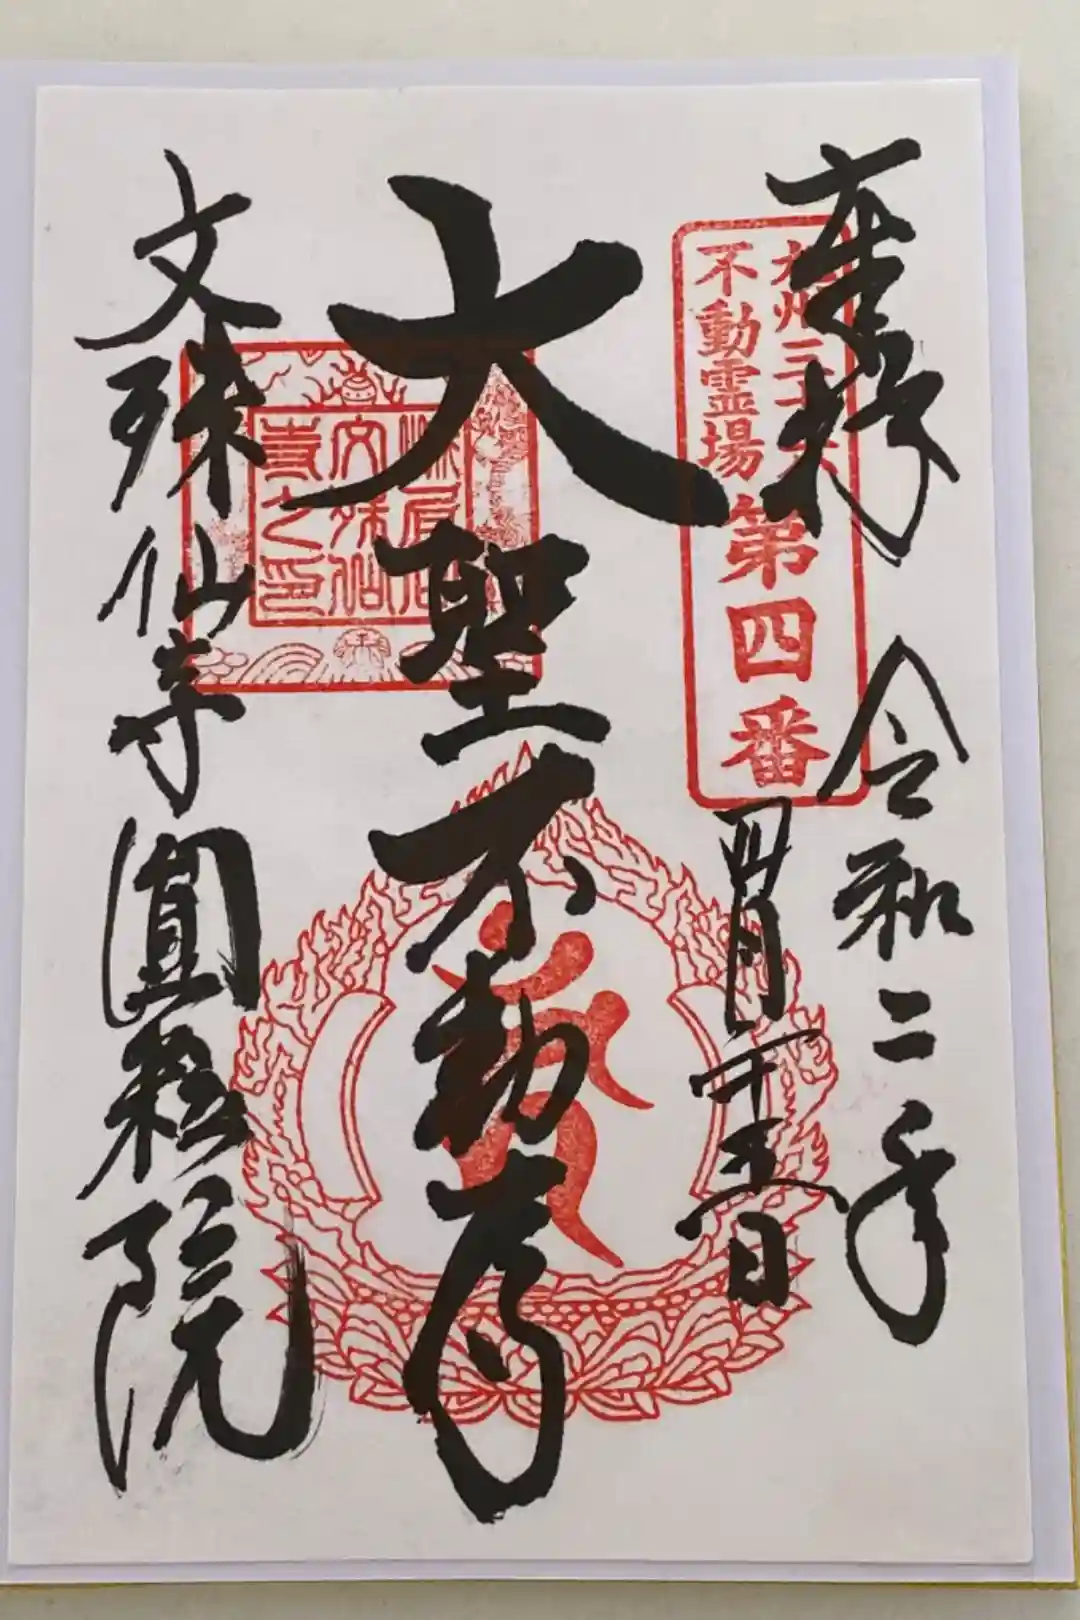 奉拝
令和二年
四月二十五日
九州三十六
不動霊場
第四番
大聖不動尊
文殊仙
寺之印
文殊仙寺
院